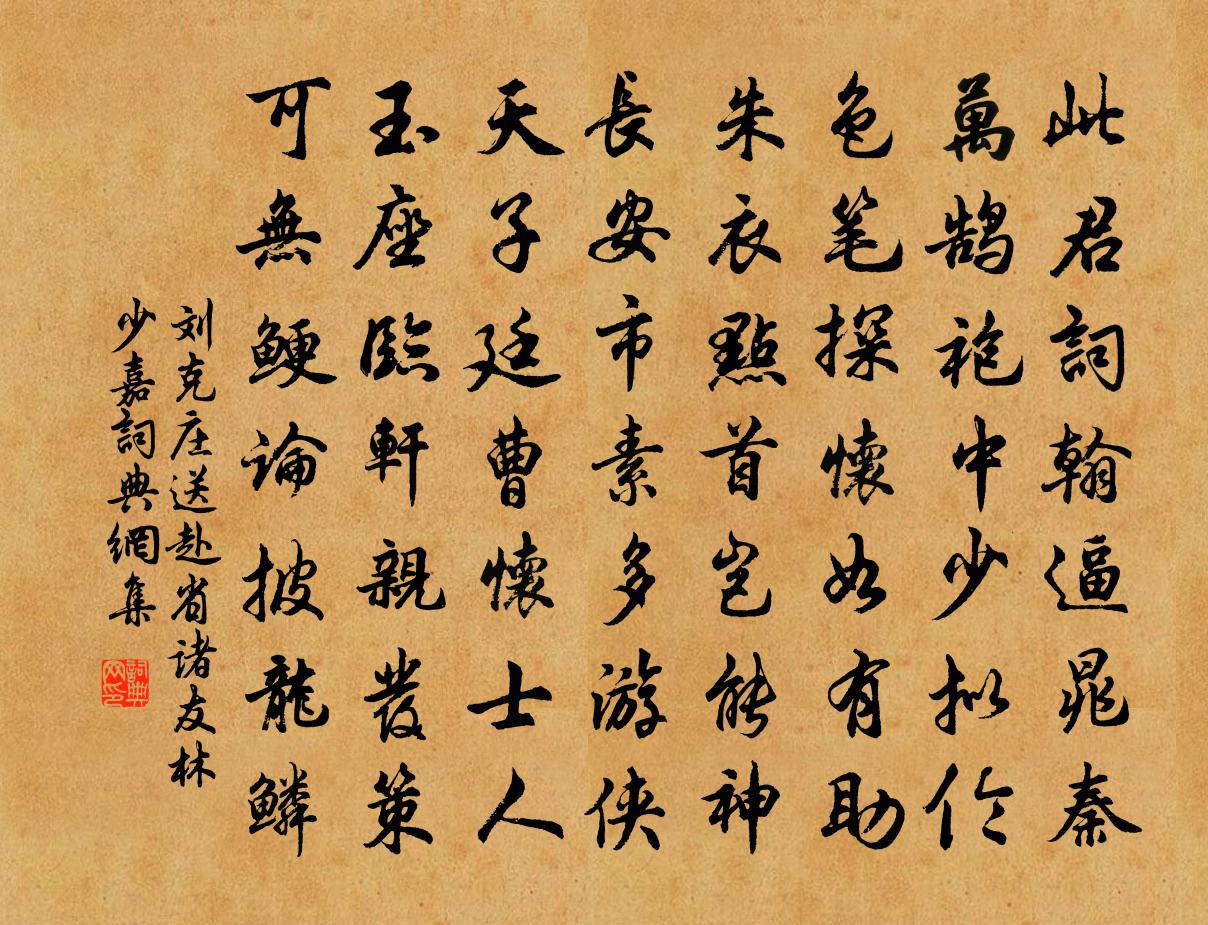 此君詞翰逼晁秦
萬鹄袍中少拟伦
色笔探懷如有助
朱衣點首岂能神
長安市素多游侠
天子廷曹懷士人
玉座臨軒親發策
可無鲠論披龍鳞
刘克庄送赴省诸友林
少嘉詞典網集
詞典
网印